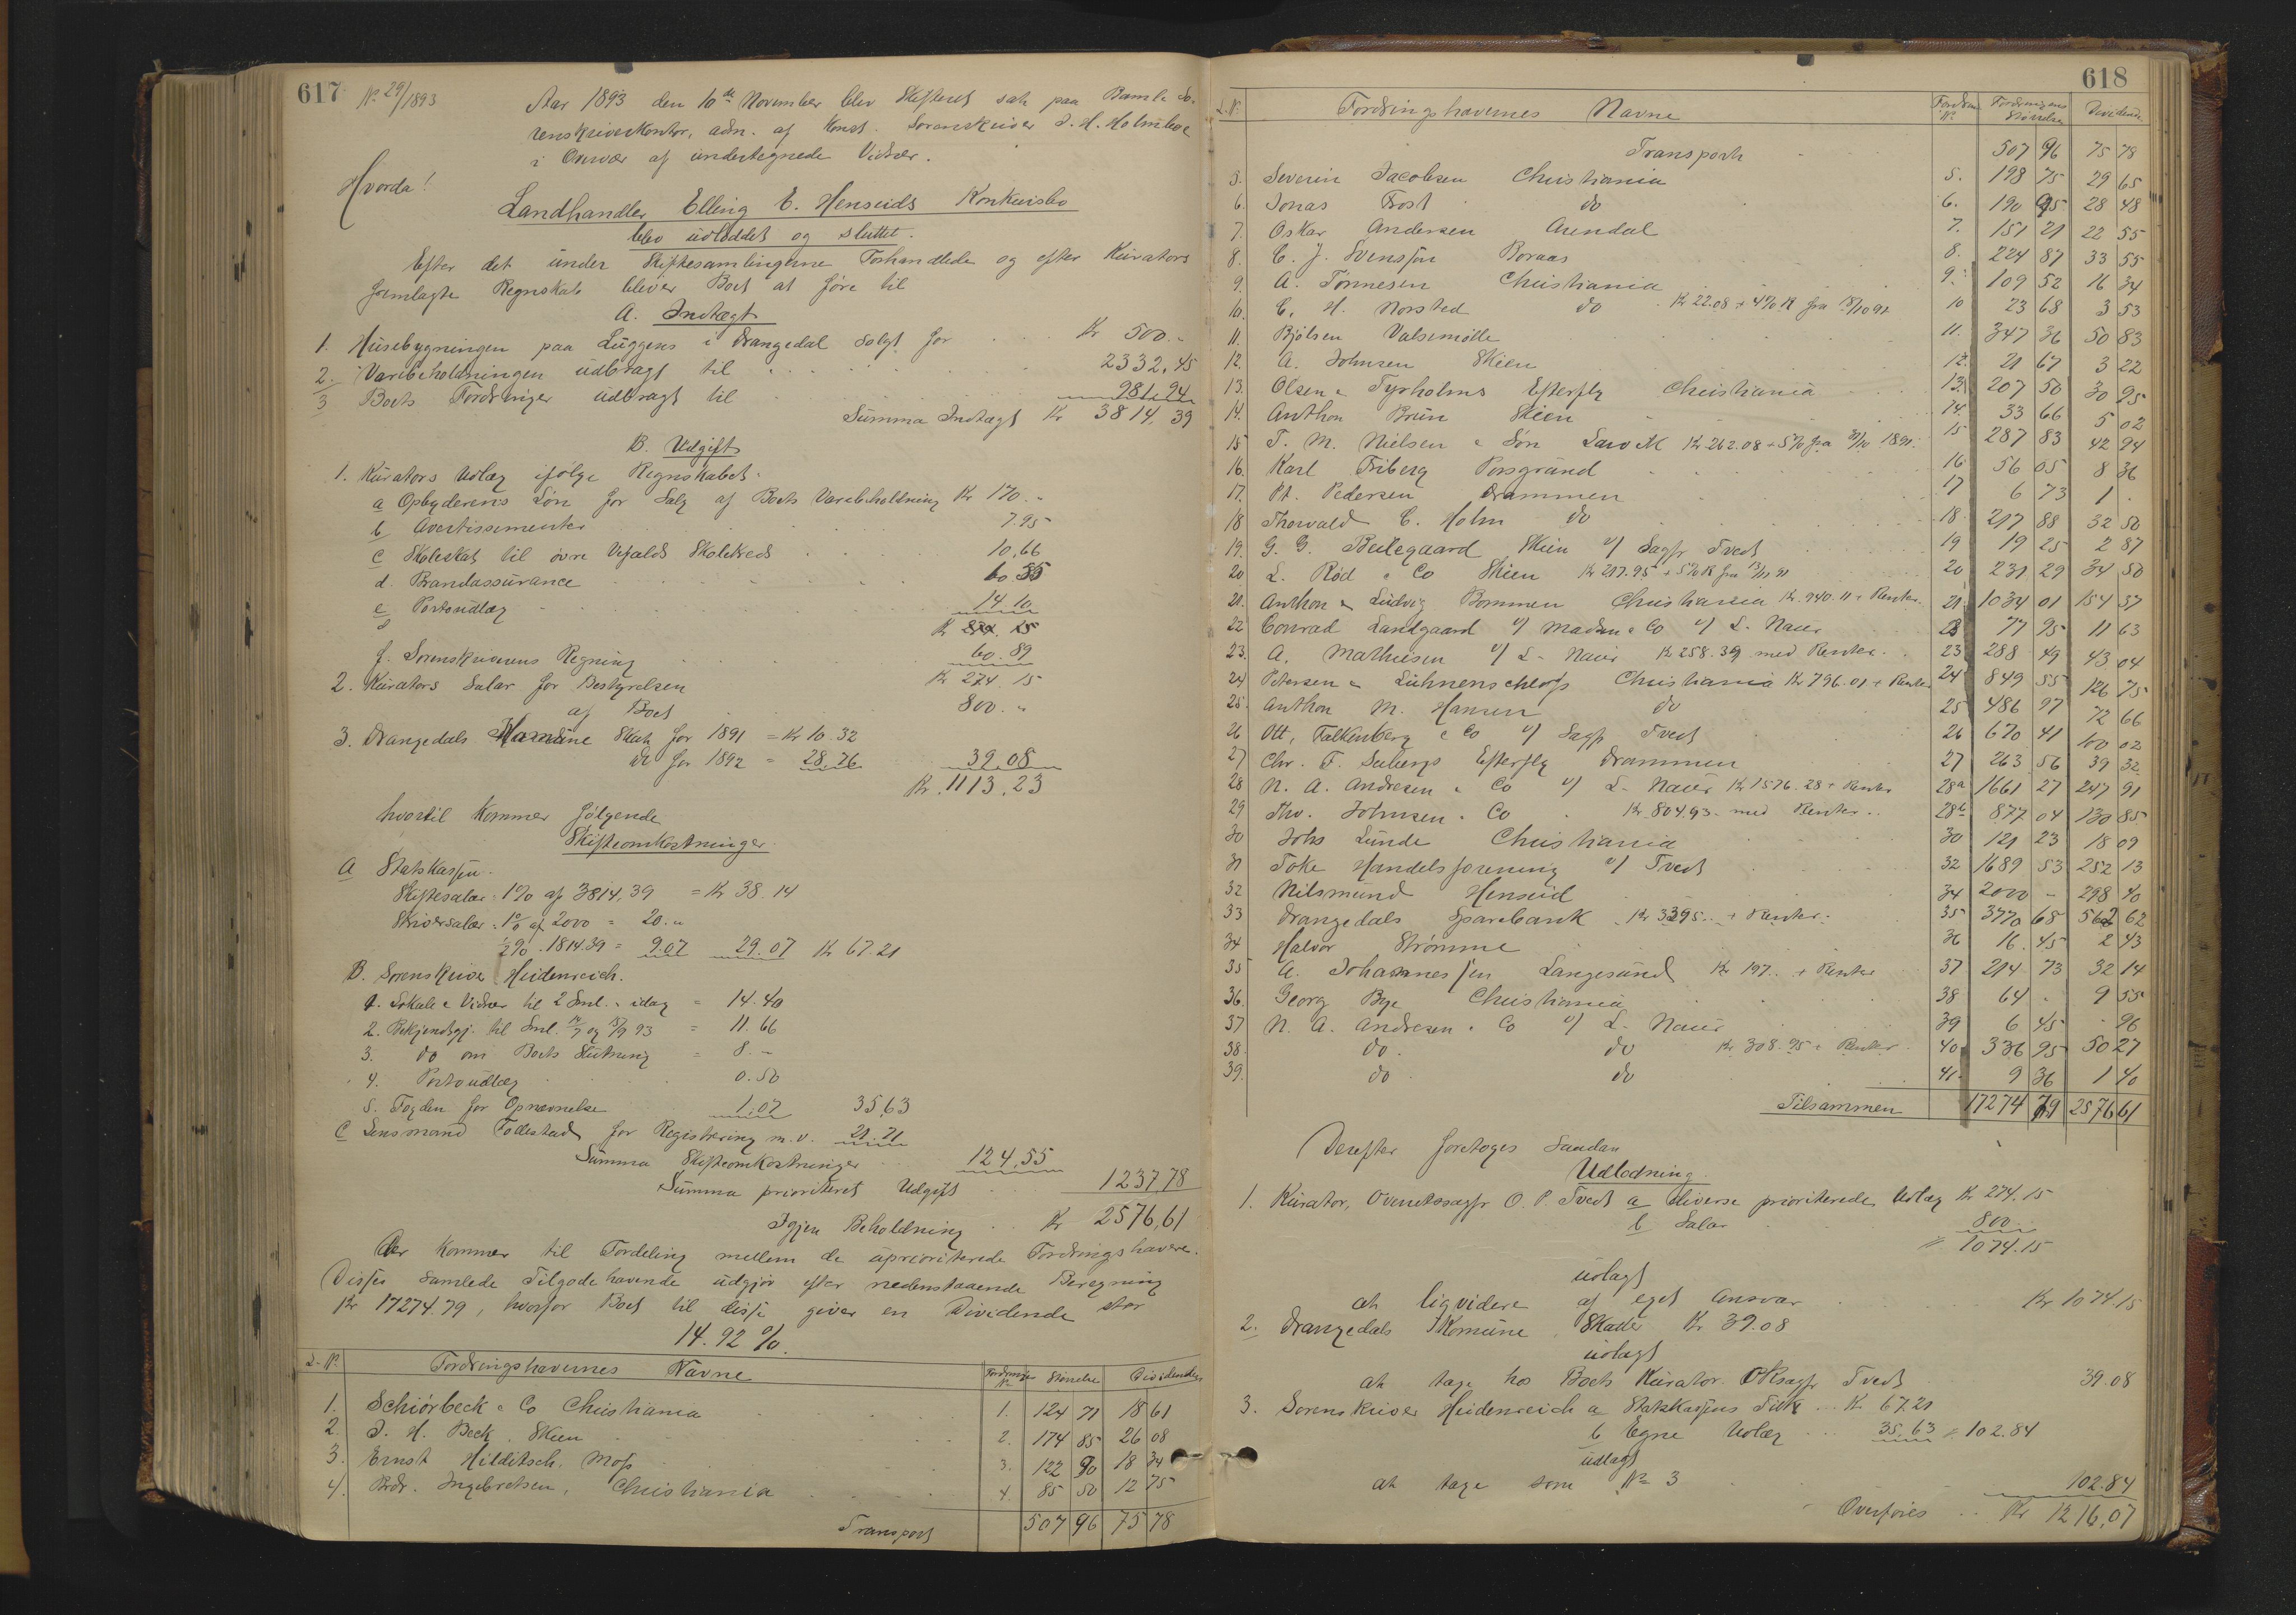 617
No 29/1893
Aar 1893 den 10de November blev Skifteret sat paa Bamle So-
renskriverkontor, adm. af Konst. Sorenskriver J. H. Holmboe
i Overvær af undertegnede Vidner.
Hvorda!
Landhandler Elling E. Henseids Konkursbo
blev udloddet og sluttet.
Efter det under Skiftesamlingerne Forhandlede og efter Kurators
fremlagte Regnskab bliver Boet at føre til
A. Indtægt
1. Husebygningen paa Luggens i Drangedal solgt for Kr 500.-
2. Varebeholdningen udbragt til 2332,45
3 Boets Fordringer udbragt til 981.94
Summa Indtægt Kr 3814,39
B. Udgift
1. Kurators Udlæg ifølge Regnskabet:
a Opbyderens Løn for Salg af Boets Varebeholdning Kr 170.-
b Avertissementer 7.95
c Skoleskat til øvre Skolekreds 10,66
d. Brandassurance 60.55
e Portoudlæg 14.10
f. Sorenskriverens Regning 60.89
Kr 274.15
2. Kurators Salær for Bestyrelsen
af Boet 800.-
3. Drangedals Komune Skat for 1891 = Kr 10.32
do for 1892 = 28.76 39.08
Kr. 1113.23
hvortil kommer følgende
Skifteomkostninger
A Statskassen.
Skiftesalær: 1% af 3814,39 = Kr 38.14
Skriversalær: 1% af 2000 = 20.-
1/2% . 1814.39 = 9.07 29.07 Kr 67.21
B. Sorenskriver Heidenreich.
1. Lokale & Vidner til 2 Sml. & idag = 14.40
2. Bekjendtgj. til Sml. 14/7 og 15/9 93 = 11.66
3. do om Boets Slutning = 8.-
4. Portoudlæg 0.50
5. Fogden for Opnævnelse 1.07 35,63
C Lensmand Tollestad for Registrering m.v. 21.71
Summa Skifteomkostninger 124,55
Summa prioriteret Udgift 1237,78
Igjen Beholdning Kr 2576,61
Der kommer til Fordeling mellem de uprioriterede Fordringshavere.
Disses samlede Tilgodehavende udgjør efter nedenstaaende Beregning
Kr 17274.79, hvorfor Boet til disse giver en Dividende stor
14.92 %.
L. No Fordringshavernes Navne Fordrings No Størrelse Dividende
1. Schiørbeck & Co Christiania 1. 124 71 18 61
2. J. H. Beck, Skien 2. 174 85 26 08
3. Ernst Hilditsch. Moss 3. 122 90 18 34
4. Brdr. Ingebretsen, Christiania 4. 85 50 12 75
Transport 507 96 75 78
618
L. No Fordringshavernes Navne Fordrin. No Fordringens Størrelse Dividende
Transport 507 96 75 78
5. Severin Jacobsen Christiania 5. 198 75 29 65
6. Jonas Frost do 6. 190 95 28 48
7. Oskar Andersen Arendal 7. 151 21 22 55
8. C. J. Svensson Boraas 8. 224 87 33 55
9. A. Tønnesen Christiania 9. 109 52 16 34
10. C. H. Norsted do Kr 22.08 + 4% R fra 18/10 91 10 23 68 3 53
11. Bjølsen Valsemølle 11. 347 36 50 83
12. A. Johnsen Skien 12. 21 67 3 22
13. Olsen & Tyrholms Efterflg Christiania 13. 207 50 30 95
14. Anthon Brun Skien 14. 33 66 5 02
15 T. M. Nielsen & Søn Larvik Kr 262.08 + 5% fra 31/10 1891. 15 287 83 42 94
16. Karl Friberg Porsgrund 16 56 05 8 36
17. Pt. Pedersen Drammen 17 6 73 1 .
18 Thorvald C. Holm do 18 217 88 32 50
19. G. G. Beilegaard Skien v/ Sagfr Tvedt 19 19 25 2 87
20 L. Rød & Co Skien Kr 217.95 + 5% R fra 13/11 91 20 231 29 34 50
21. Anthon & Ludvig Bommen Christiania Kr. 940.11 + Renter. 21. 1034 01 154 37
22 Conrad Landgaard v/ Madsen & Co v/ L. Naur 77 95 11 63
23. A. Mathiesen v/ L. Naur Kr 258.39 med Renter. 23 288 49 43 04
24 Petersen & Luhnenschloss Christiania Kr 796.01 + Renter 24 849 55 126 75
25. Anthon M. Hansen do 25 486 97 72 66
26 Ott, Falkenberg & Co v/ Sagfr Tvedt 26 670 41 100 02
27 Chr. F. Seebergs Efterflg Drammen 27 263 56 39 32
28 N. A. Andresen & Co v/ L. Naur Kr 1576.28 + Renter 28a 1661 27 247 91
29 Thv. Johnsen & Co Kr. 804.93 med Renter.. 28b 877 04 130 85
30 Johs Lunde Christiania 30 121 23 18 09
31 Toke Handelsforening v/ Tvedt 32 1689 53 252 13
32 Nilsmund Henseid 34 2000 - 298 40
33 Drangedals Sparebank Kr 3395.. + Renter. 35 3770 68 562 62
34 Halvor Strømme 36 16 45 2 43
35 A. Johannessen Langesund Kr 197.. + Renter 37 214 73 32 14
36. Georg Bye Christiania 38 64 . 9 55
37 N. A. Andresen & Co v/ L. Naur 39 6 45 . 96
38. do. do Kr 308.95 + Renter. 40 336 95 50 27
39. do do 41. 9 36 1 40
Tilsammen 17274 79 2576 61
Derefter foretoges saadan
Udlodning
1. Kurator, Overretssagfr O. P. Tvedt a diverse prioriterede Udlæg Kr 274.15
b Salær 800..
= 1074.15
udlagt
at liqvidere af eget Ansvar Kr 1074.15
2. Drangedals Komune, Skatter Kr 39.08
udlagt
at tage hos Boets Kurator ORsagfr Tvedt 39.08
3. Sorenskriver Heidenreich a Statskassens Tilk... Kr 67.21
b Egne Udlæg ... 35.63 = 102.84
udlagt
at tage som No 3 102.84
Overføres .. Kr 1216,07